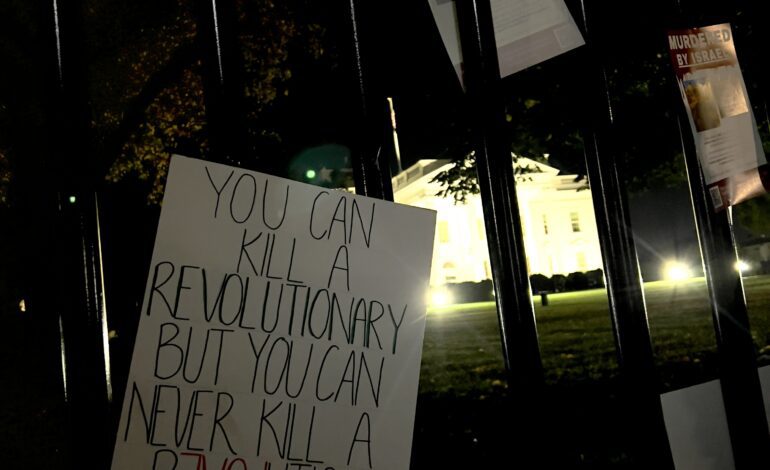 YOU CAN
KILL A
REVOLUTIONARY
BUT YOU CAN
NEVER KILL A
MURDERED
BY ISRAEL